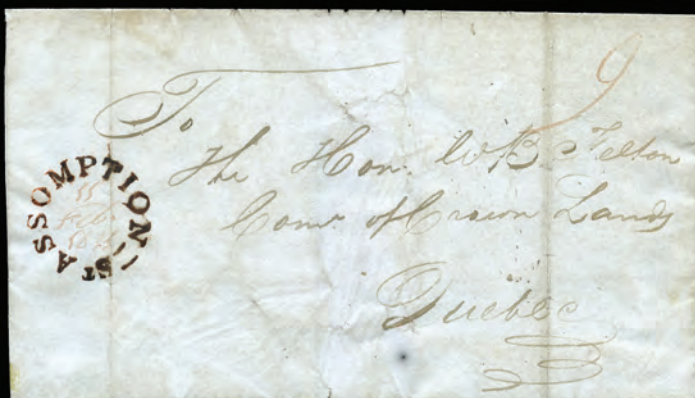 9
To
The Hon. W B Felton
Comr. of Crown Lands
Quebec
ST ASSOMPTION
Feb